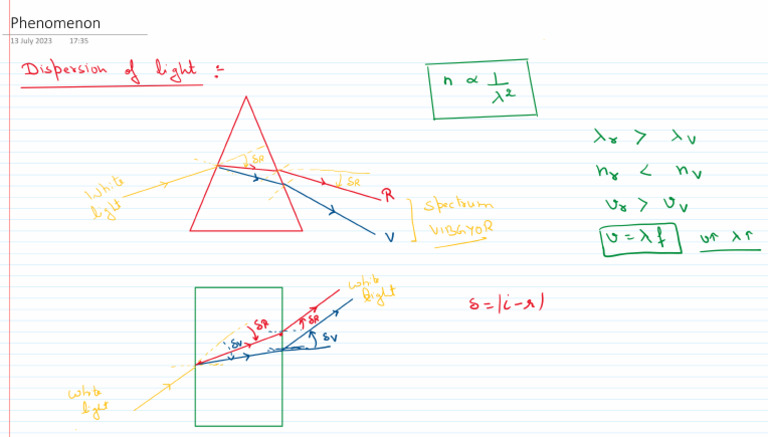 Phenomenon
13 July 2023 17:35
Dispersion of light :-
n ∝ 1/λ²
λr > λv
nr < nv
vr > vv
v = λf v↑ λ↑
White
light
δR
δR
R
V
Spectrum
VIBGYOR
White
light
δ = |i-r|
δR
δR
δV
i
δV
White
light